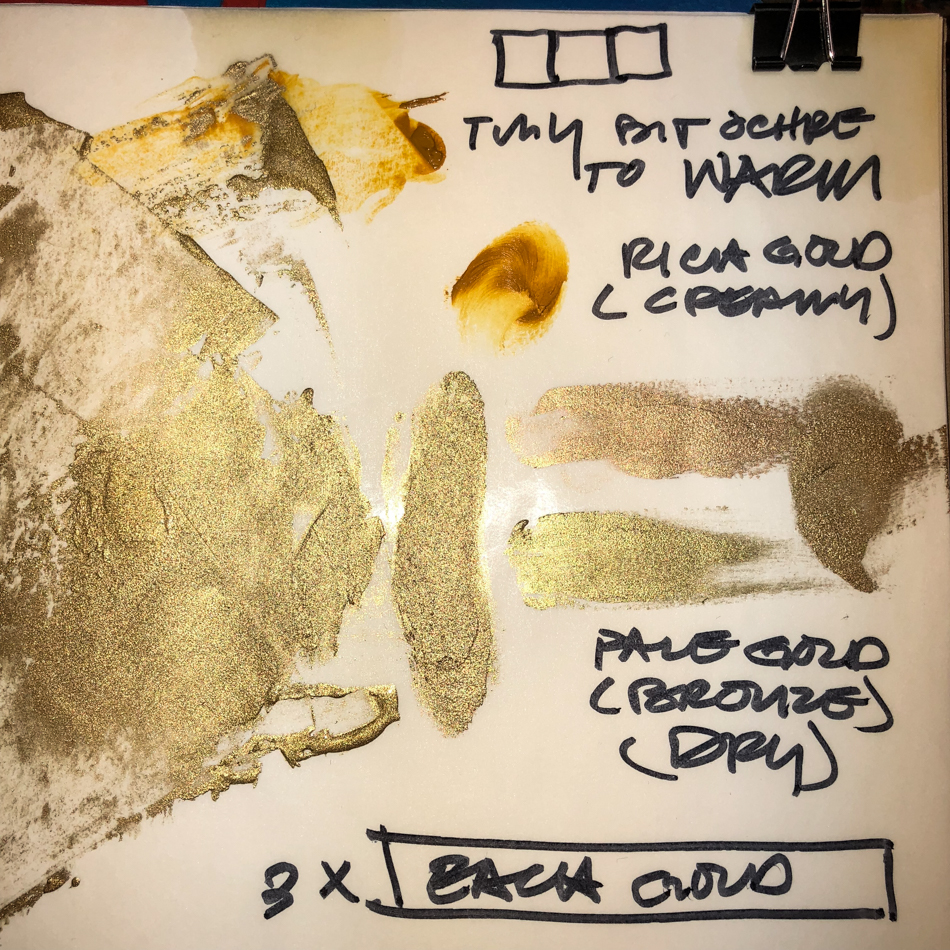 TINY BIT OCHRE
TO WARM
RICH GOLD
(CREAMY)
PALE GOLD
(BRONZE)
(DRY)
3 X EACH GOLD